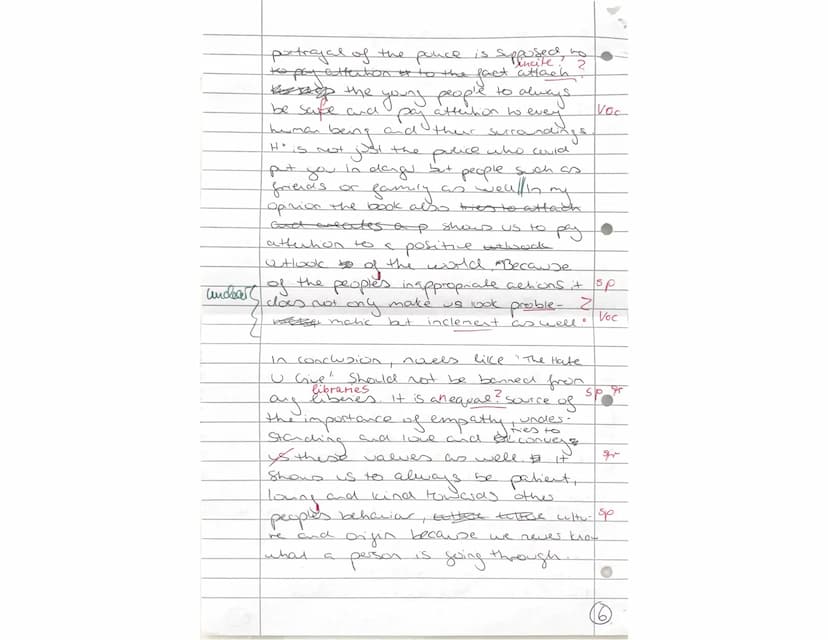 portrayal of the police is supposed to
to pay attention to the fact attach incite? ?
the young people to always
be safe and pay attention to every Voc
human being and their surroundings.
It is not just the police who could
put you in danger but people such as
friends or family as well // In my
opinion the book also tries to attach
and creates a p shows us to pay
attention to a positive outlook
outlook to of the world. Because
of the people's inappropriate actions it sp
unclear does not only make us look proble- ?
matic but inclement as well. Voc
In conclusion, novels like 'The Hate
U Give' should not be banned from
libraries
any liberies. It is an equal? source of sp gr
the importance of empathy, unders-
tries to
standing and love and conveys
us these values as well. It gr
shows us to always be patient,
loving and kind towards other
people's behavior, cultu- sp
re and origin because we never know
what a person is going through.
6